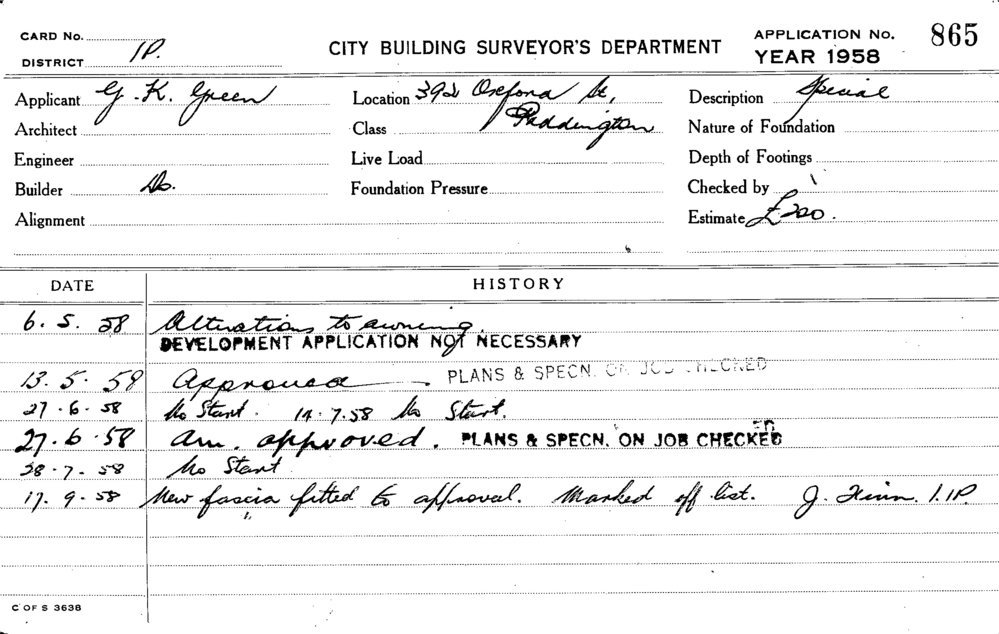 CARD No.
DISTRICT 1P.
CITY BUILDING SURVEYOR'S DEPARTMENT
APPLICATION No. 865
YEAR 1958
Applicant G. K. Green
Location 392 Oxford St, Paddington
Description Special
Architect
Class
Nature of Foundation
Engineer
Live Load
Depth of Footings
Builder Do.
Foundation Pressure
Checked by
Alignment
Estimate £200.
DATE HISTORY
6. 5. 58 Alterations to awning.
DEVELOPMENT APPLICATION NOT NECESSARY
13. 5. 58 Approved PLANS & SPECN. ON JOB CHECKED
27. 6. 58 No Start. 14. 7. 58 No Start.
27. 6. 58 am. approved. PLANS & SPECN. ON JOB CHECKED
28. 7. 58 No Start
17. 9. 58 New fascia fitted to approval. Marked off list. J.
C OF S 3638